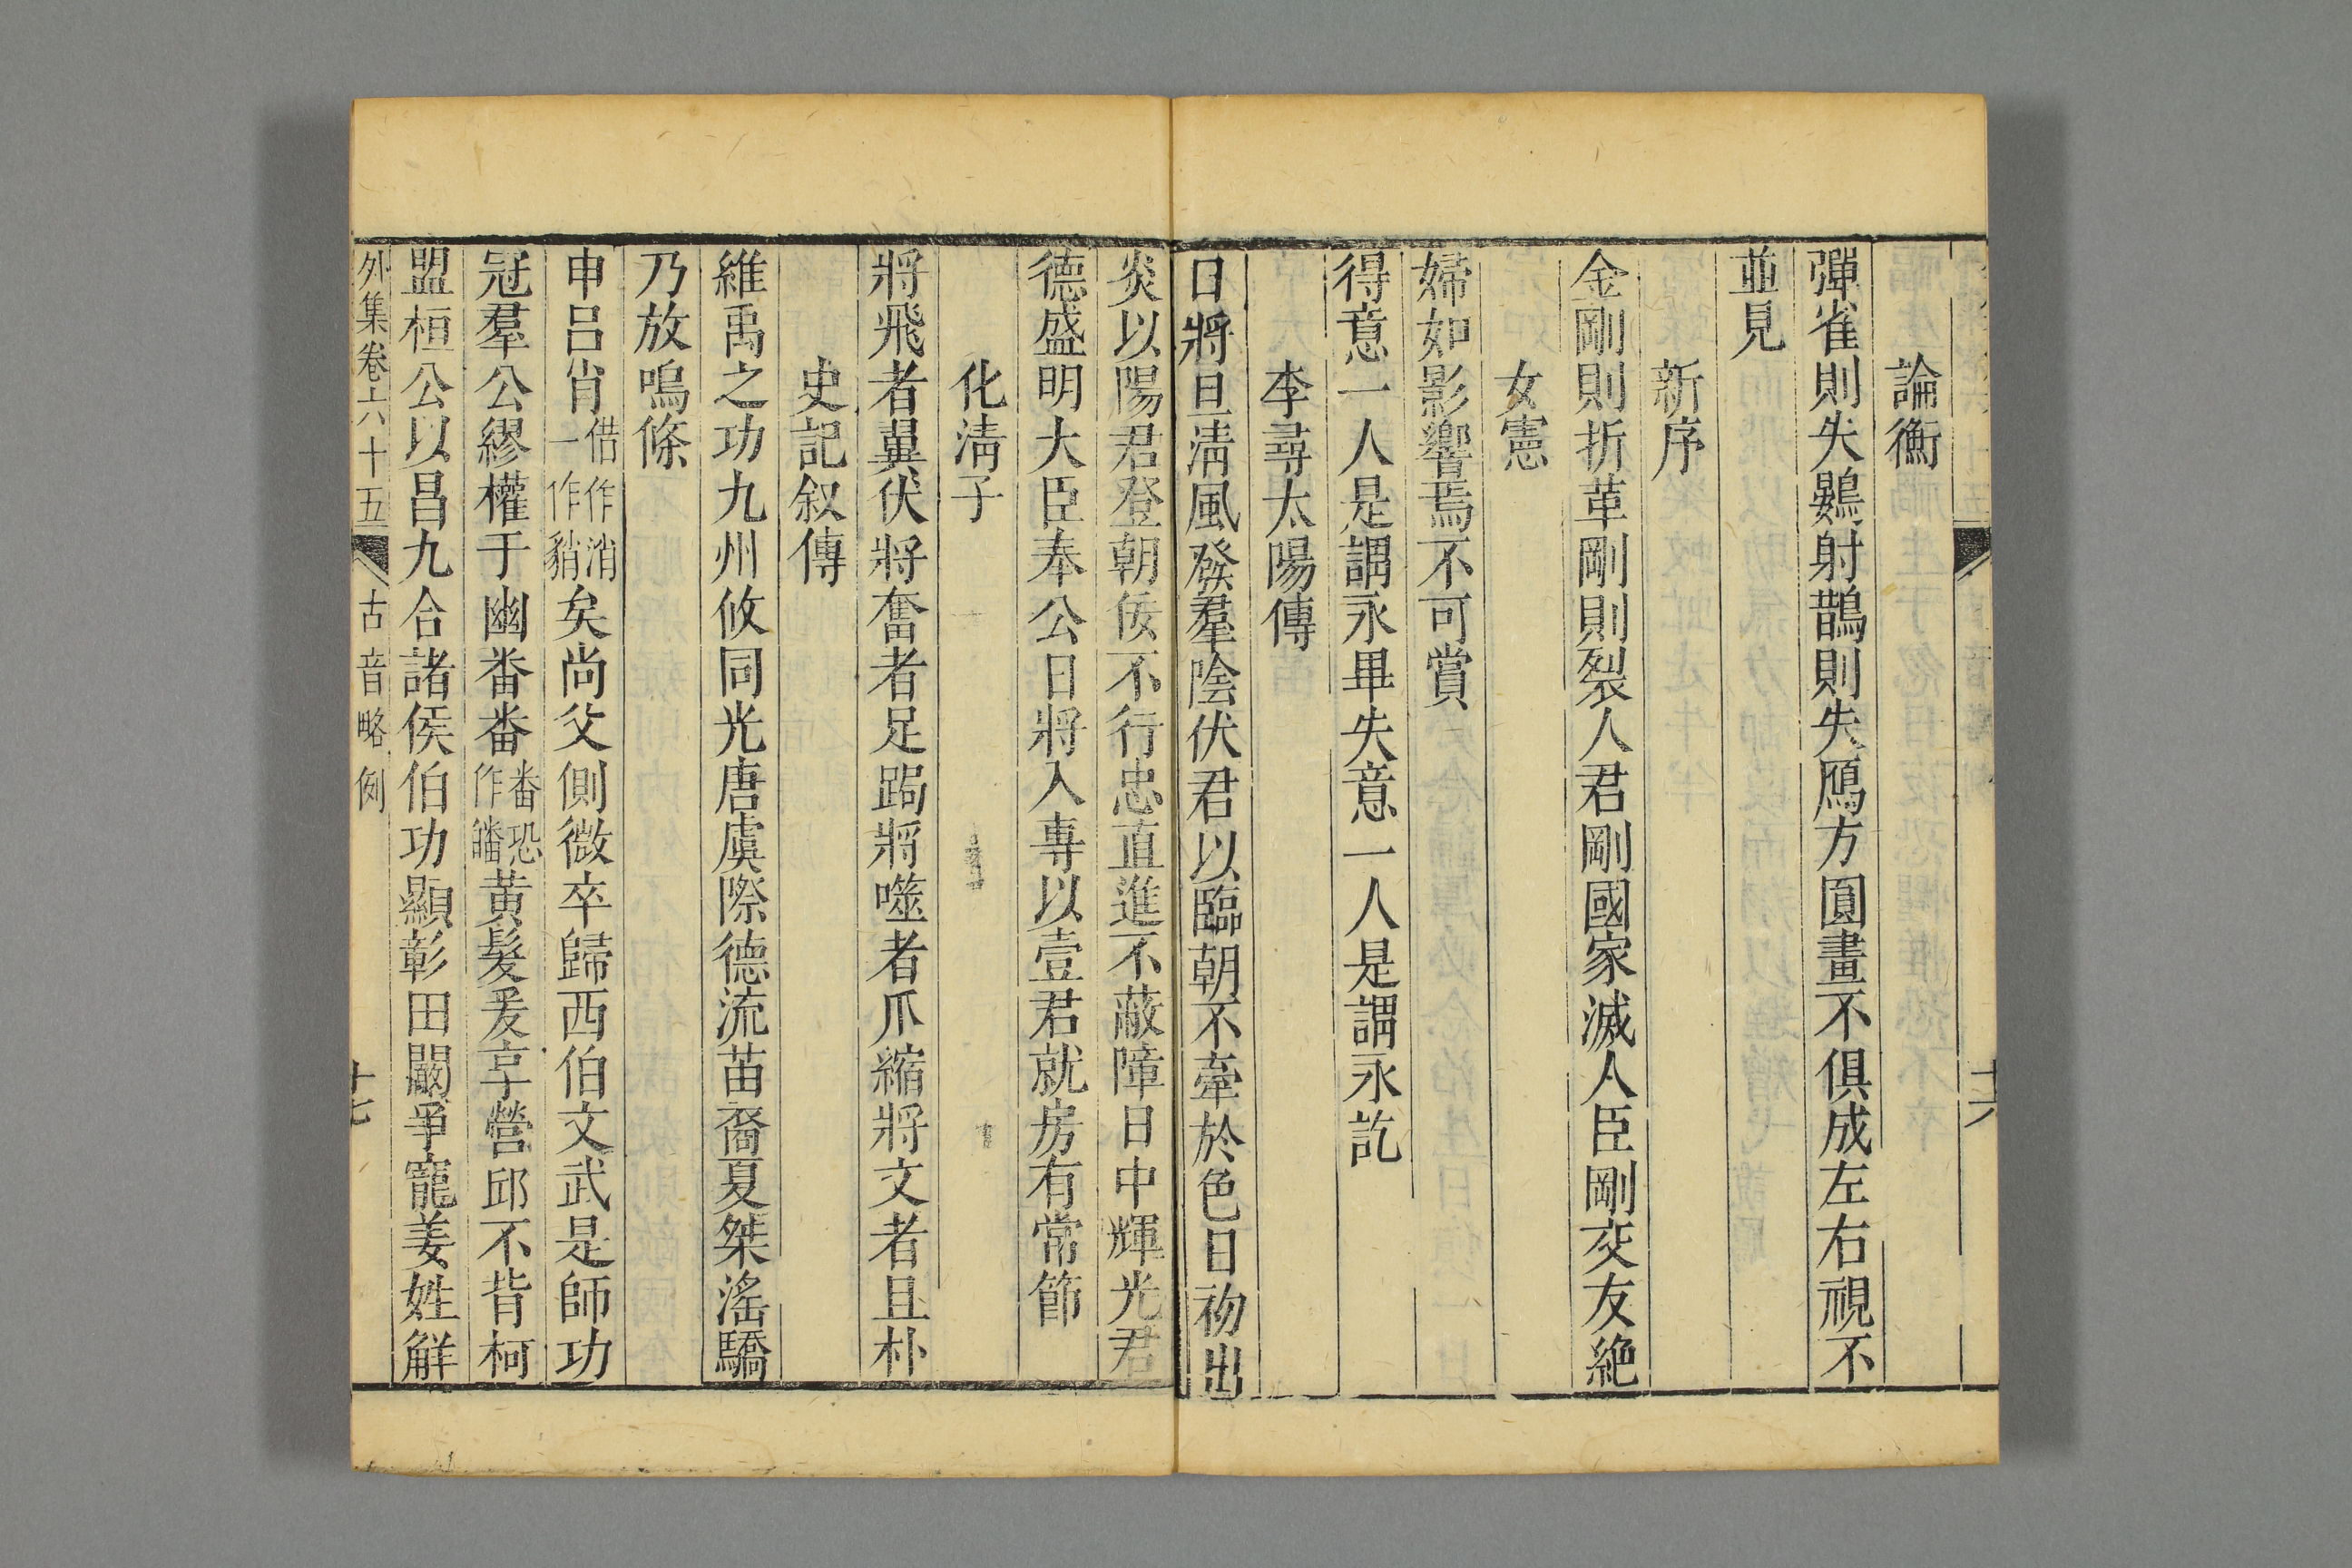 論衡
彈雀則失鷃射鵲則失鴈方圓畫不俱成左右視不
並見
新序
金剛則折革剛則裂人君剛國家滅人臣剛交友絶
女憲
婦如影響焉不可賞
得意一人是謂永畢失意一人是謂永訖
李尋太陽傳
日將旦清風發羣陰伏君以臨朝不牽於色日初出
炎以陽君登朝佞不行忠直進不蔽障日中輝光君
德盛明大臣奉公日將入專以壹君就房有常節
化清子
將飛者翼伏將奮者足跼將噬者爪縮將文者且朴
史記叙傳
維禹之功九州攸同光唐虞際德流苗裔夏桀滛驕
乃放鳴條
申呂肖借作消一作䏴矣尚父側微卒歸西伯文武是師功
冠羣公繆權于幽番番番恐作皤黄髮爰享營邱不背柯
盟桓公以昌九合諸侯伯功顯彰田闞爭寵姜姓解
外集卷六十五 古音略例 十七